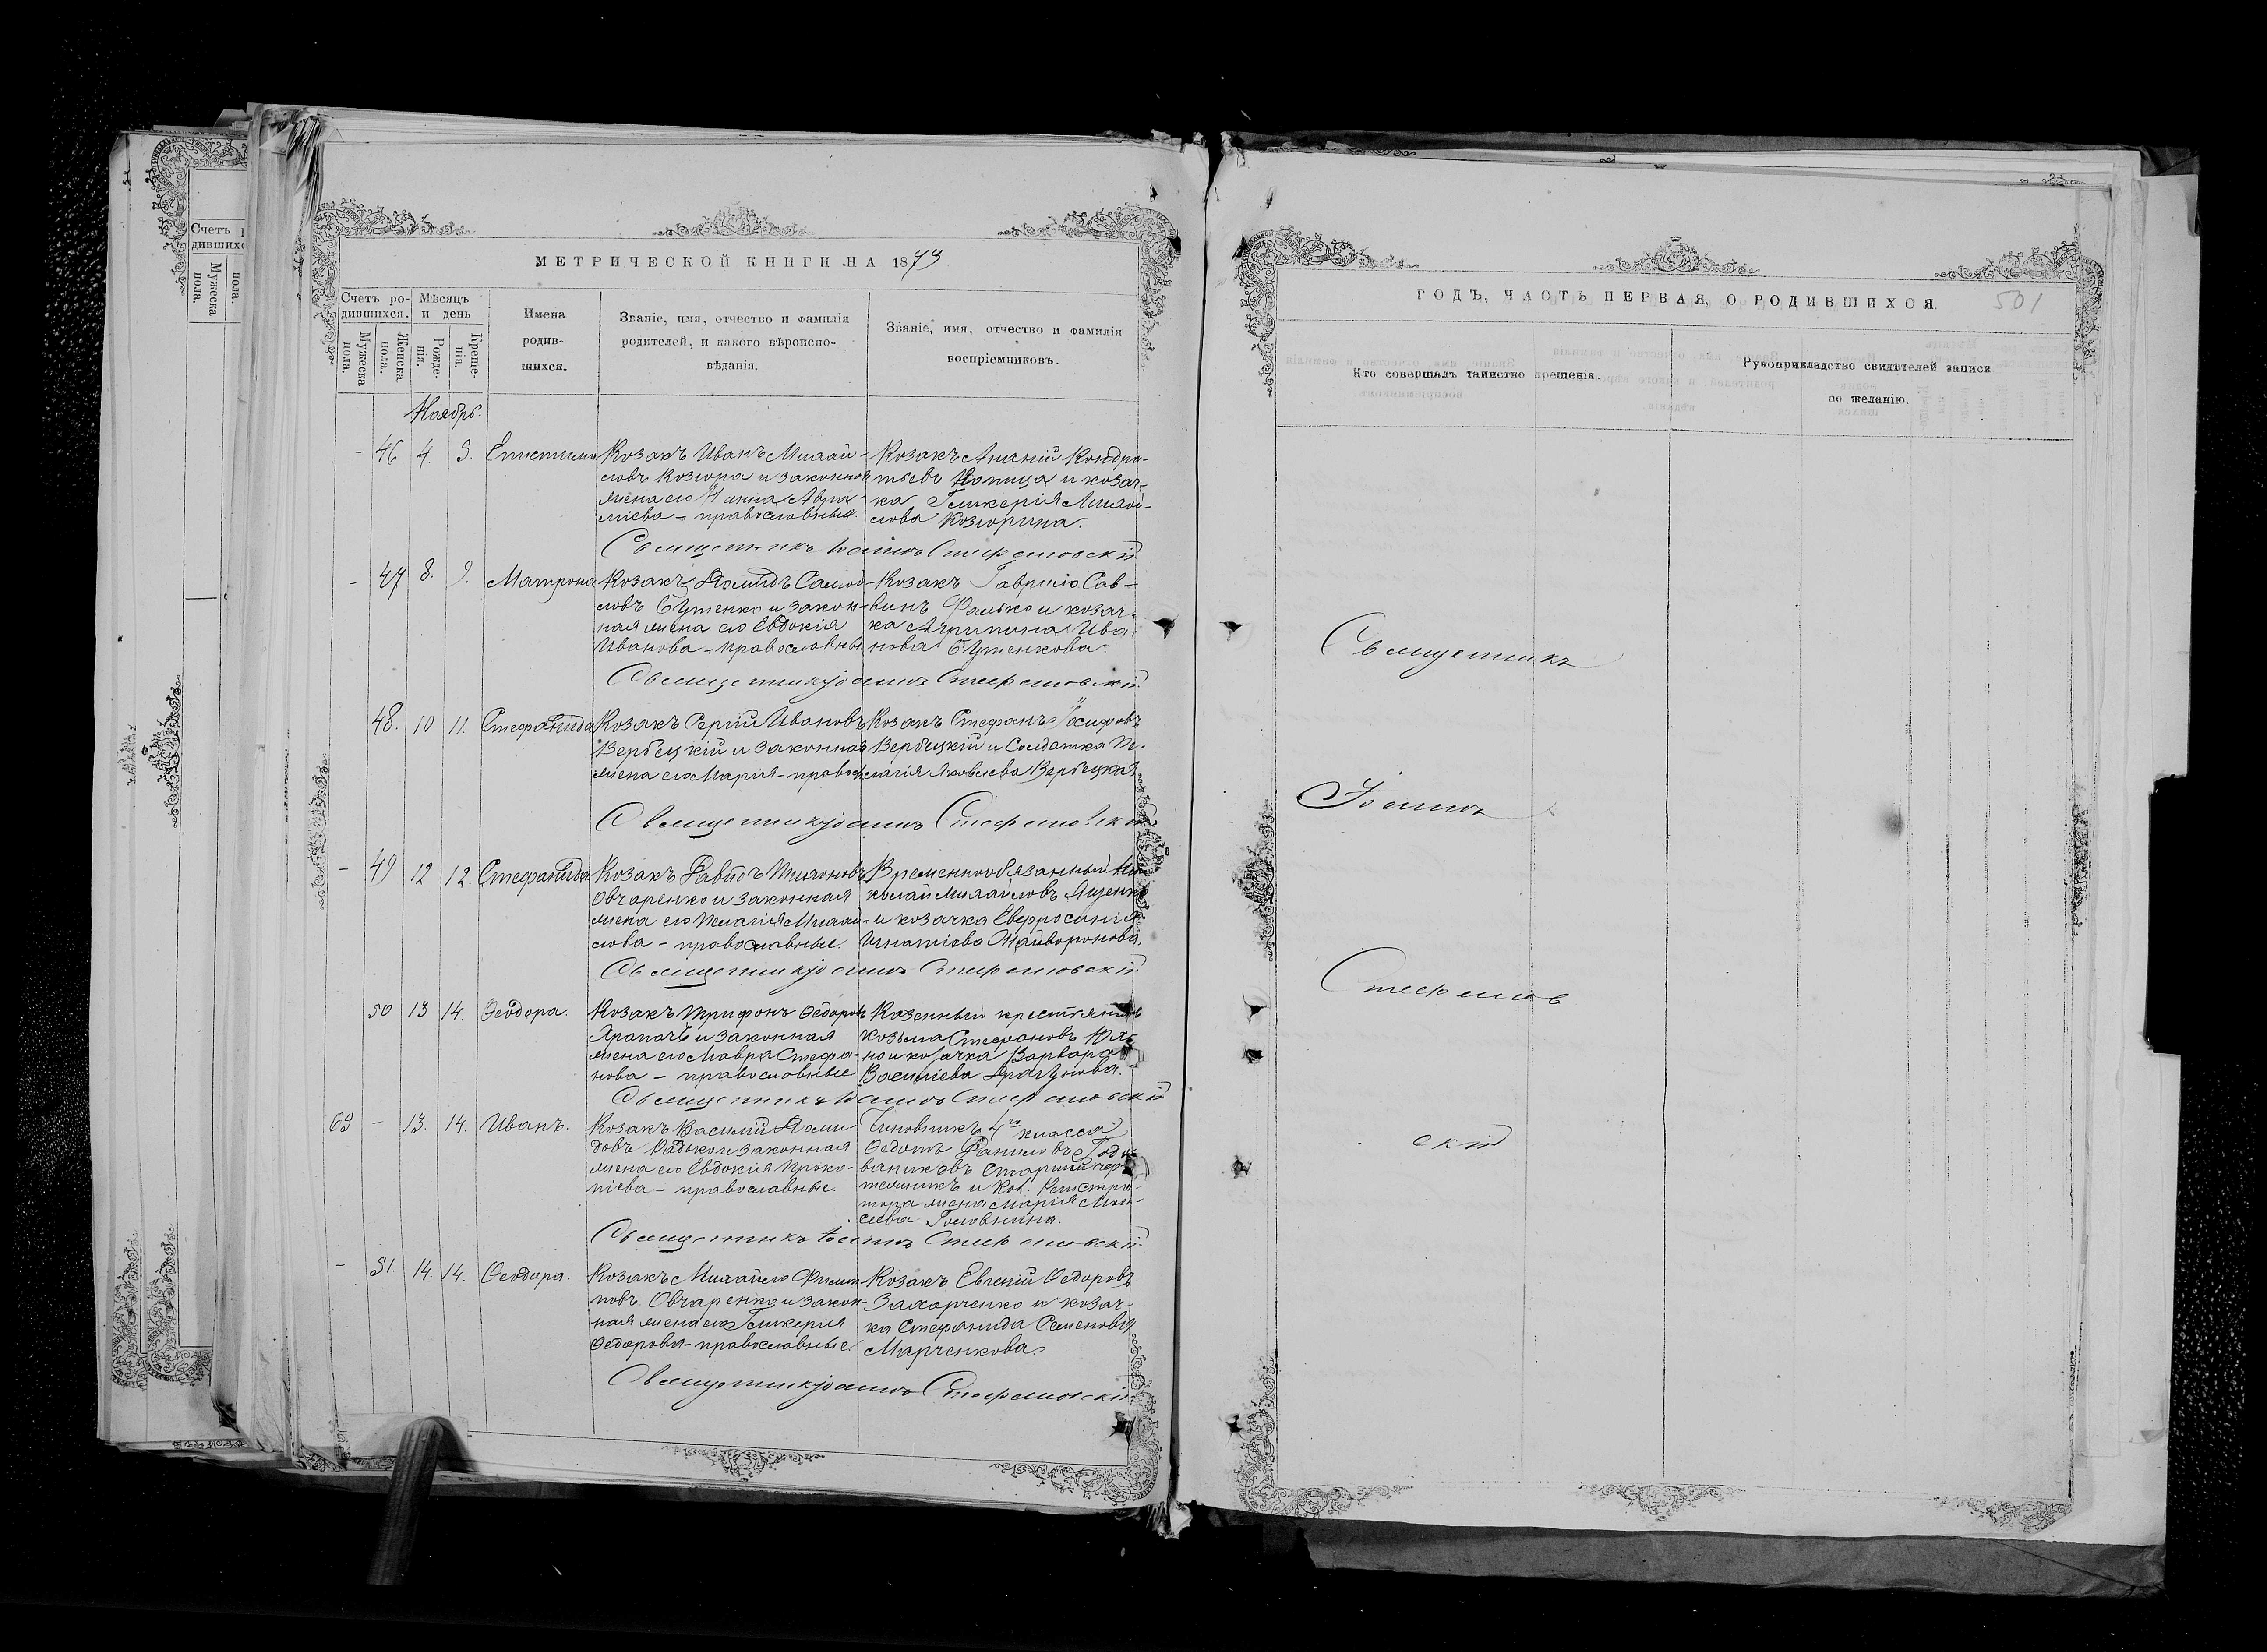 Счетъ
дившихс
Мужеска
пола.
пола.
МЕТРИЧЕСКОЙ КНИГИ НА 1873
Счетъ ро-
дившихся.
Мѣсяцъ
и день
Мужеска
пола.
Женска
пола.
Рожде-
нія.
Креще-
нія.
Имена
родив-
шихся.
Званіе, имя, отчество и фамилія
родителей, и какого вѣроиспо-
вѣданія.
Званіе, имя, отчество и фамилія
воспріемниковъ.
Ноябрь.
- 46 4. 5. Епистимия
Козакъ Иванъ Михай-
ловъ Козюра и законная
жена его Авра-
міева - православные.
Козакъ Ананій Кондра-
тьевъ и козач-
ка Гликерія Михай-
лова Козюрина.
Священникъ Іоаннъ Стефановскій
- 47 8. 9. Матрона
Козакъ Самой-
ловъ Бутенко и закон-
ная жена его Евдокія
Иванова - православные
Козакъ Гавріилъ Сав-
винъ Фалько и козач-
ка Агрипина Ива-
нова Бутенкова.
Священникъ Іоаннъ Стефановскій
48. 10 11. Стефанида
Козакъ Сергій Ивановъ
Вербецкій и законная
жена его Марія - правосл
Козакъ Стефанъ Іосифовъ
Вербецкій и Солдатка П.
лагія Яковлева Вербецкая
Священникъ Іоаннъ Стефановскій
- 49 12 12. Стефанида
Козакъ Давидъ Тихоновъ
Овчаренко и законная
жена его Пелагія Михай-
лова - православные.
Временнообязанный Ни-
колай Михайловъ Яценко
и козачка Евфросинія
Игнатіева Гайворонова.
Священникъ Іоаннъ Стефановскій
50 13 14. Ѳеодора.
Козакъ Трифонъ Ѳедоровъ
и законная
жена его Мавра Стефа-
нова - православные
Казенный крестьянинъ
Козьма Стефановъ
но и козачка Варвара
Василіева
Священникъ Іоаннъ Стефановскій
69 - 13. 14. Иванъ.
Козакъ Василій
довъ Радько и законная
жена его Евдокія Проко-
піева - православные.
Чиновникъ 4го класса
Ѳедотъ Даниловъ
и Кол. Регистра-
тора жена Марія Мои-
сеева Головнина.
Священникъ Іоаннъ Стефановскій
- 51. 14. 14. Ѳеодора.
Козакъ Михайло Филип-
повъ Овчаренко и закон-
ная жена его Гликерія
Ѳедорова - православные.
Козакъ Евгеній Ѳедоровъ
Захарченко и козач-
ка Стефанида Семенова
Марченкова.
Священникъ Іоаннъ Стефановскій
ГОДЪ, ЧАСТЬ ПЕРВАЯ, О РОДИВШИХСЯ.
501
Кто совершалъ таинство крещенія.
Рукоприкладство свидѣтелей записи
по желанію.
Священникъ
Іоаннъ
Стефанов
скій